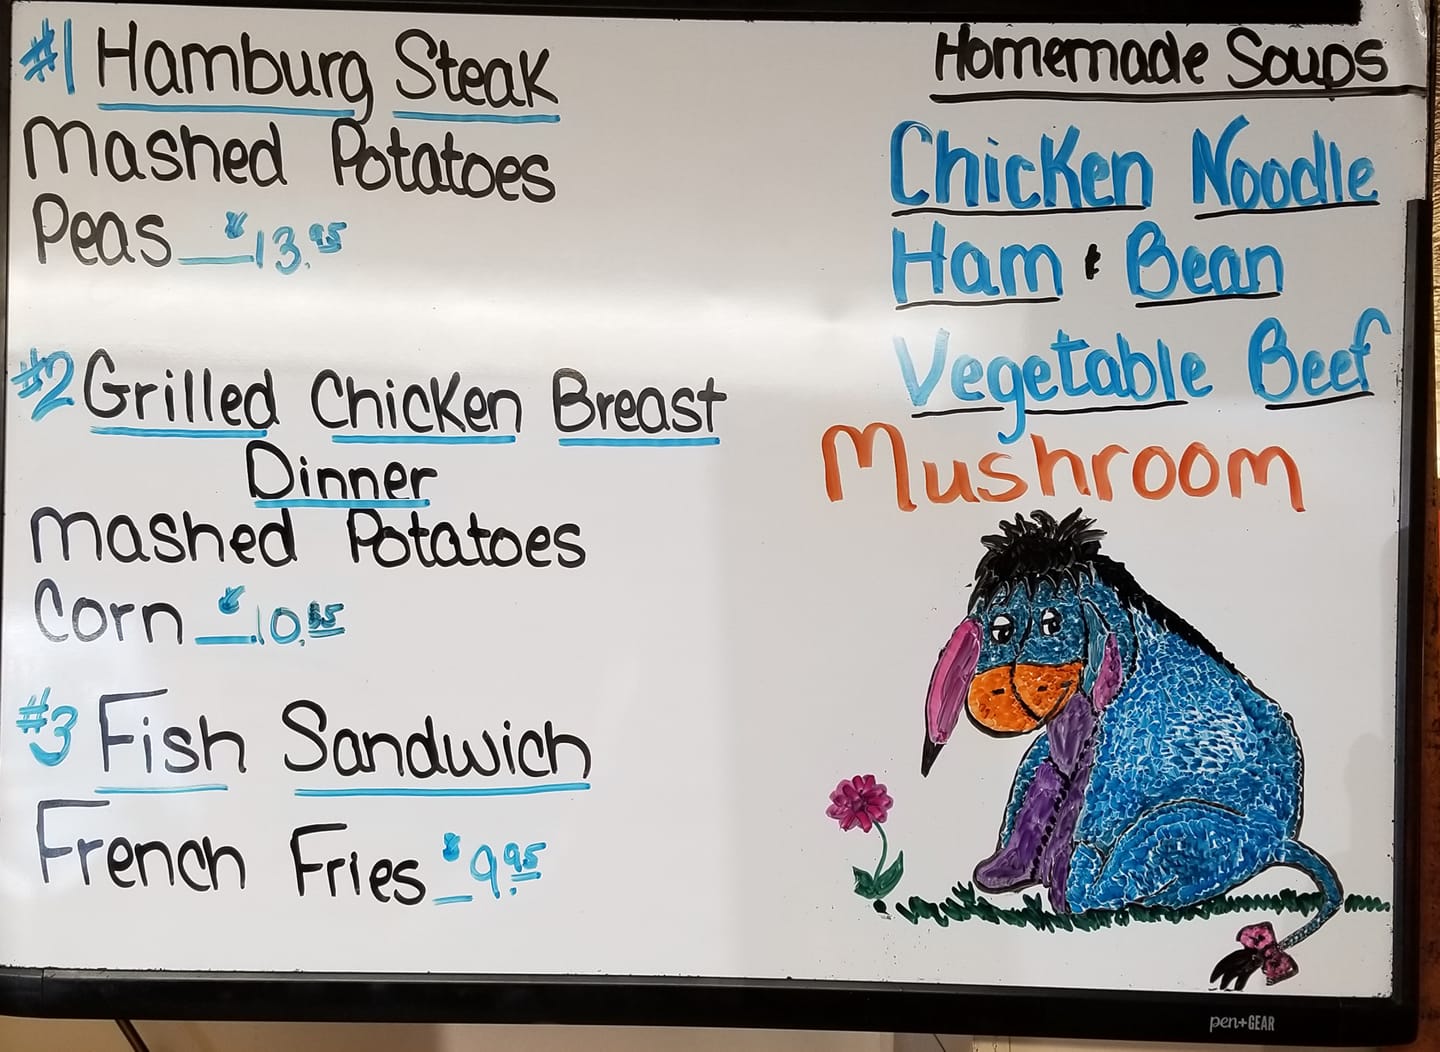 #1 Hamburg Steak
Mashed Potatoes
Peas $13.95
#2 Grilled Chicken Breast
Dinner
Mashed Potatoes
Corn $10.95
#3 Fish Sandwich
French Fries $9.95
Homemade Soups
Chicken Noodle
Ham & Bean
Vegetable Beef
Mushroom
pen+GEAR